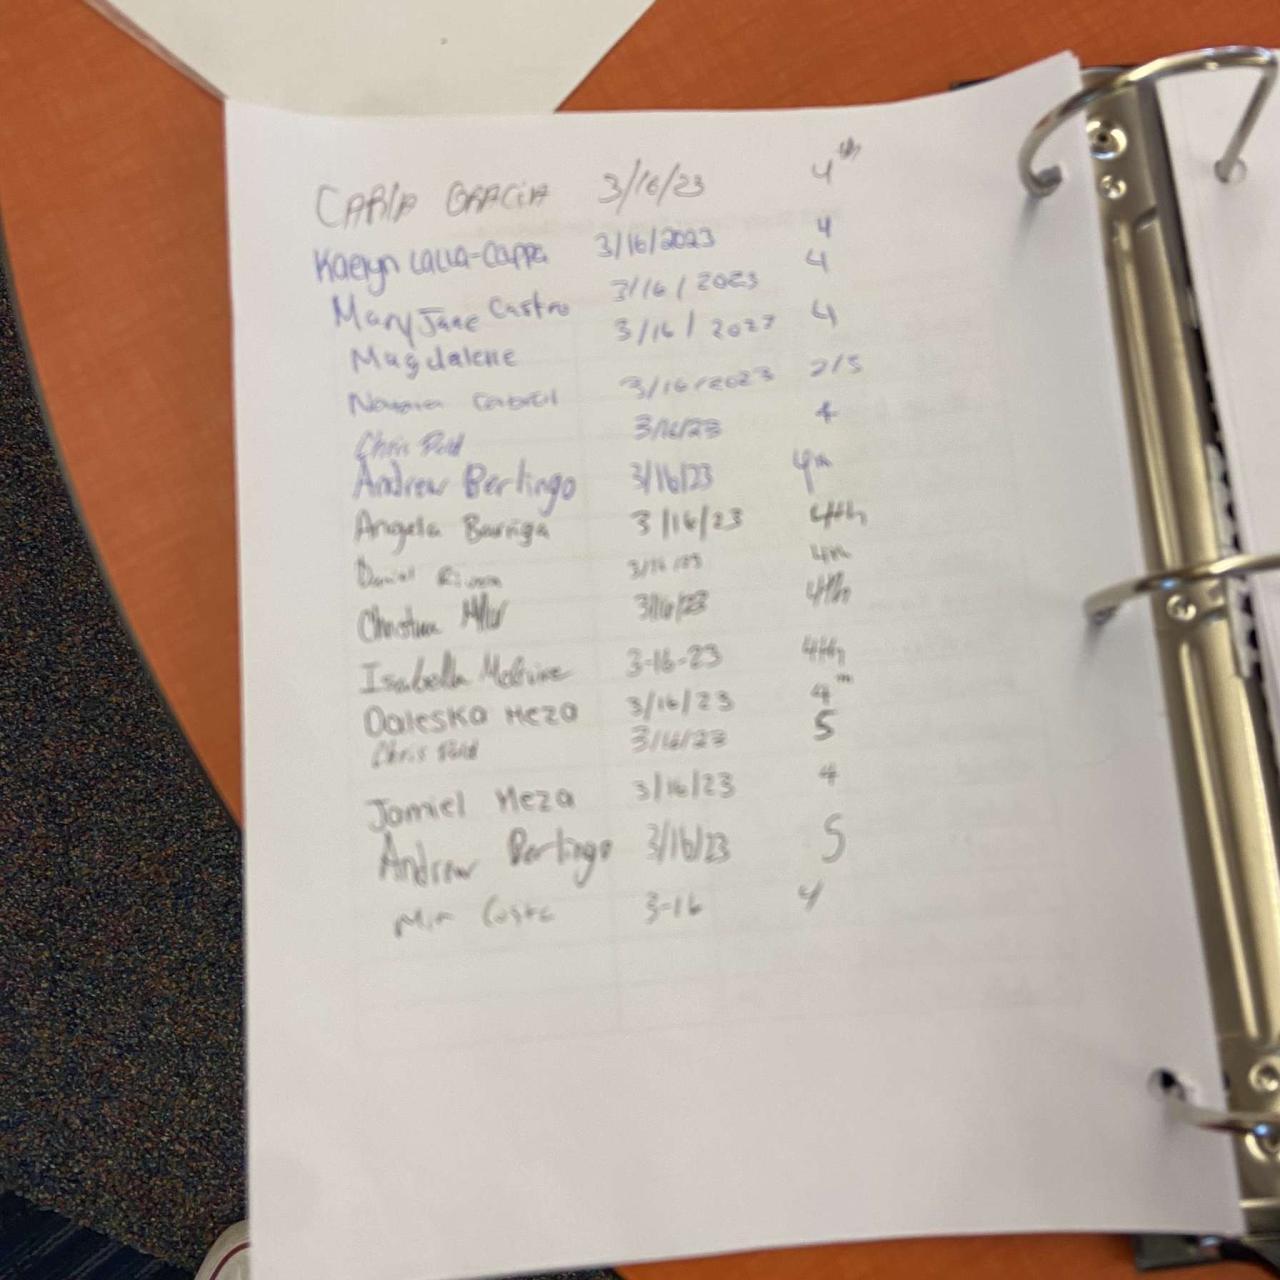 CARlA GRACiA 3/16/23 4th
Kaelyn Lalla-Cappa 3/16/2023 4
Mary Jane Castro 3/16/2023 4
Magdalene 3/16/2023 4
3/16/2023 2/5
Chris 3/16/23 4
Andrew Bertingo 3/16/23 4th
Angela Barriga 3/16/23 4th
Daniel 3/16/23 4th
Christina 3/16/23 4th
Isabella McGuire 3-16-23 4th
Daleska Meza 3/16/23 4th
Chris 3/16/23 5
Jomiel Meza 3/16/23 4
Andrew Bertingo 3/16/23 5
3-16 4